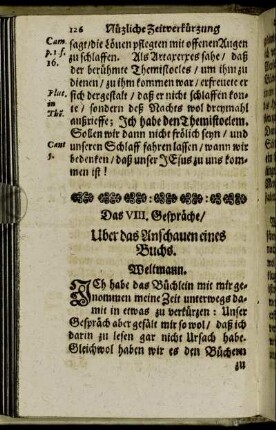 126 Nüzliche Zeitverkürzung
Cam. sagt/die Löuen pflegten mit offenen Augen
p. 1. f. zu schlaffen. Als Artaxerxes sahe/ daß
16. der berühmte Themistocles/ um ihm zu
dienen/ zu ihm kommen war/ erfreuete er
Plut. sich dergestalt/ daß er nicht schlaffen kon-
in te/ sondern deß Nachts wol dreymahl
Thē. außrieffe; Jch habe den Themistoclem.
Solten wir dann nicht frölich seyn/ und
Cant unseren Schlaff fahren lassen/ wann wir
5. bedenken/ daß unser JEsus zu uns kom-
men ist!
Das VIII. Gespräche/
Uber das Anschauen eines
Buchs.
Weltmann.
JCh habe das Büchlein mit mir ge-
nommen meine Zeit unterwegs da-
mit in etwas zu verkürzen: Unser
Gespräch aber gefält mir so wol/ daß ich
darin zu lesen gar nicht Ursach habe.
Gleichwol haben wir es den Büchern
zu